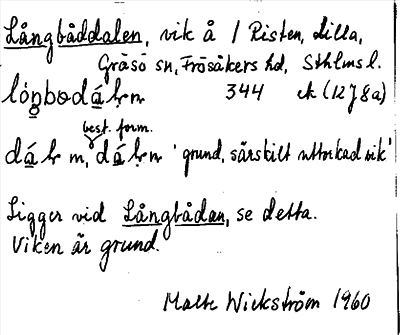 Långbåddalen, vik å / Risten, Lilla,
Gräsö sn, Frösåkers hd, Sthlms l.
344 ek (12J8a)
best. form.
'grund, särskilt uttorkad vik'
Ligger vid Långbådan, se detta.
Viken är grund.
Malte Wickström 1960